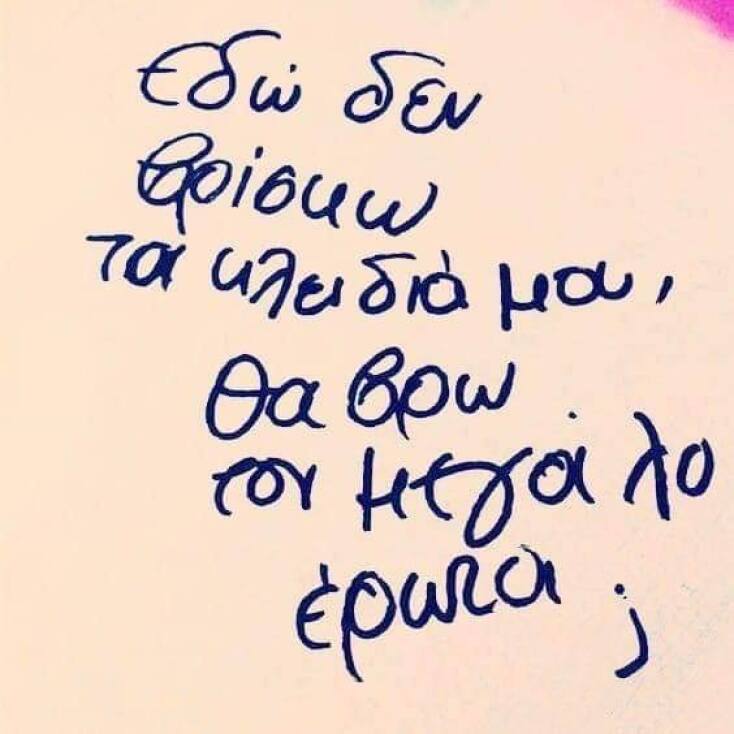 Εδώ δεν
βρίσκω
τα κλειδιά μου,
θα βρω
τον μεγάλο
έρωτα;